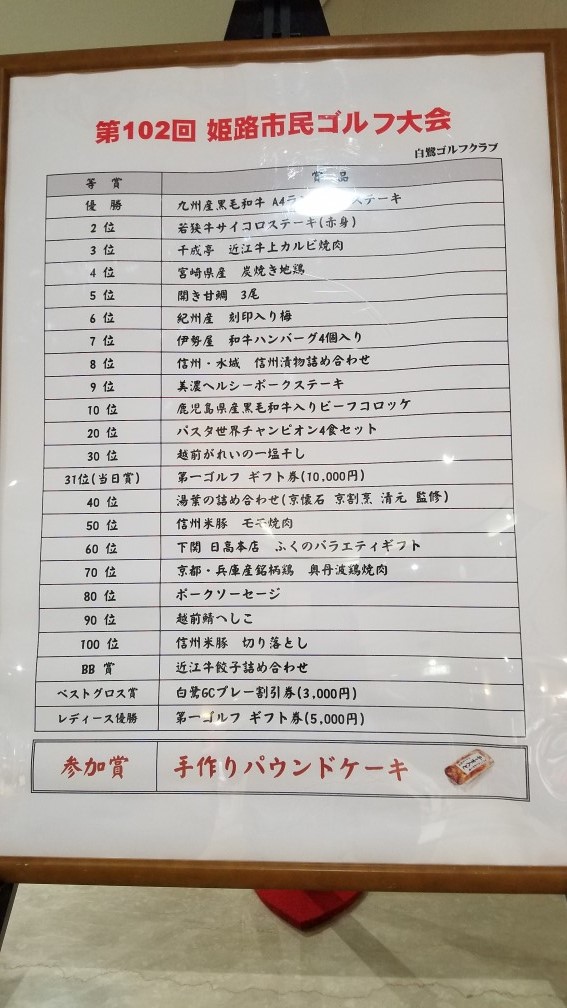 第102回 姫路市民ゴルフ大会
白鷺ゴルフクラブ
等 賞 賞 品
優 勝 九州産黒毛和牛 A4ラ ステーキ
2 位 若狭牛サイコロステーキ(赤身)
3 位 千成亭 近江牛上カルビ焼肉
4 位 宮崎県産 炭焼き地鶏
5 位 開き甘鯛 3尾
6 位 紀州産 刻印入り梅
7 位 伊勢屋 和牛ハンバーグ4個入り
8 位 信州・水城 信州漬物詰め合わせ
9 位 美濃ヘルシーポークステーキ
10 位 鹿児島県産黒毛和牛入りビーフコロッケ
20 位 パスタ世界チャンピオン4食セット
30 位 越前がれいの一塩干し
31位(当日賞) 第一ゴルフ ギフト券(10,000円)
40 位 湯葉の詰め合わせ(京懐石 京割烹 清元 監修)
50 位 信州米豚 モモ焼肉
60 位 下関 日高本店 ふくのバラエティギフト
70 位 京都・兵庫産銘柄鶏 奥丹波鶏焼肉
80 位 ポークソーセージ
90 位 越前鯖へしこ
100 位 信州米豚 切り落とし
BB 賞 近江牛餃子詰め合わせ
ベストグロス賞 白鷺GCプレー割引券(3,000円)
レディース優勝 第一ゴルフ ギフト券(5,000円)
参加賞 手作りパウンドケーキ